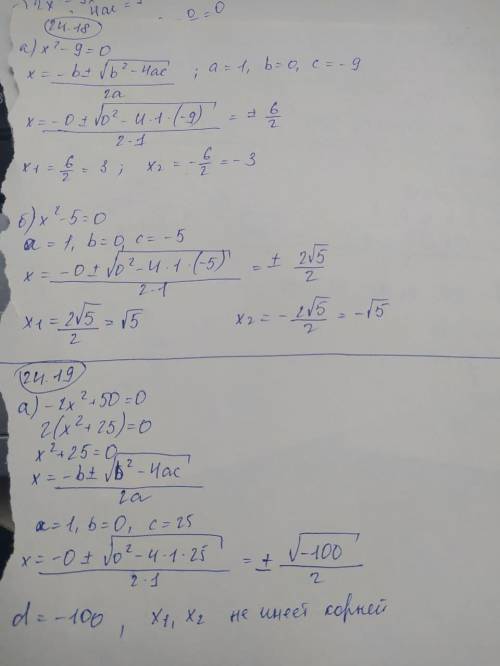 4ac = 0 = 0
24.18
а) x² - 9 = 0
x = (-b ± √(b² - 4ac)) / 2a ; a = 1, b = 0, c = -9
x = (-0 ± √(0² - 4·1·(-9))) / 2·1 = ± 6/2
x1 = 6/2 = 3 ; x2 = -6/2 = -3
б) x² - 5 = 0
a = 1, b = 0, c = -5
x = (-0 ± √(0² - 4·1·(-5))) / 2·1 = ± 2√5/2
x1 = 2√5/2 = √5 x2 = -2√5/2 = -√5
24.19
а) -2x² + 50 = 0
2(x² + 25) = 0
x² + 25 = 0
x = (-b ± √(b² - 4ac)) / 2a
a = 1, b = 0, c = 25
x = (-0 ± √(0² - 4·1·25)) / 2·1 = ± √-100 / 2
d = -100, x1, x2 не имеет корней